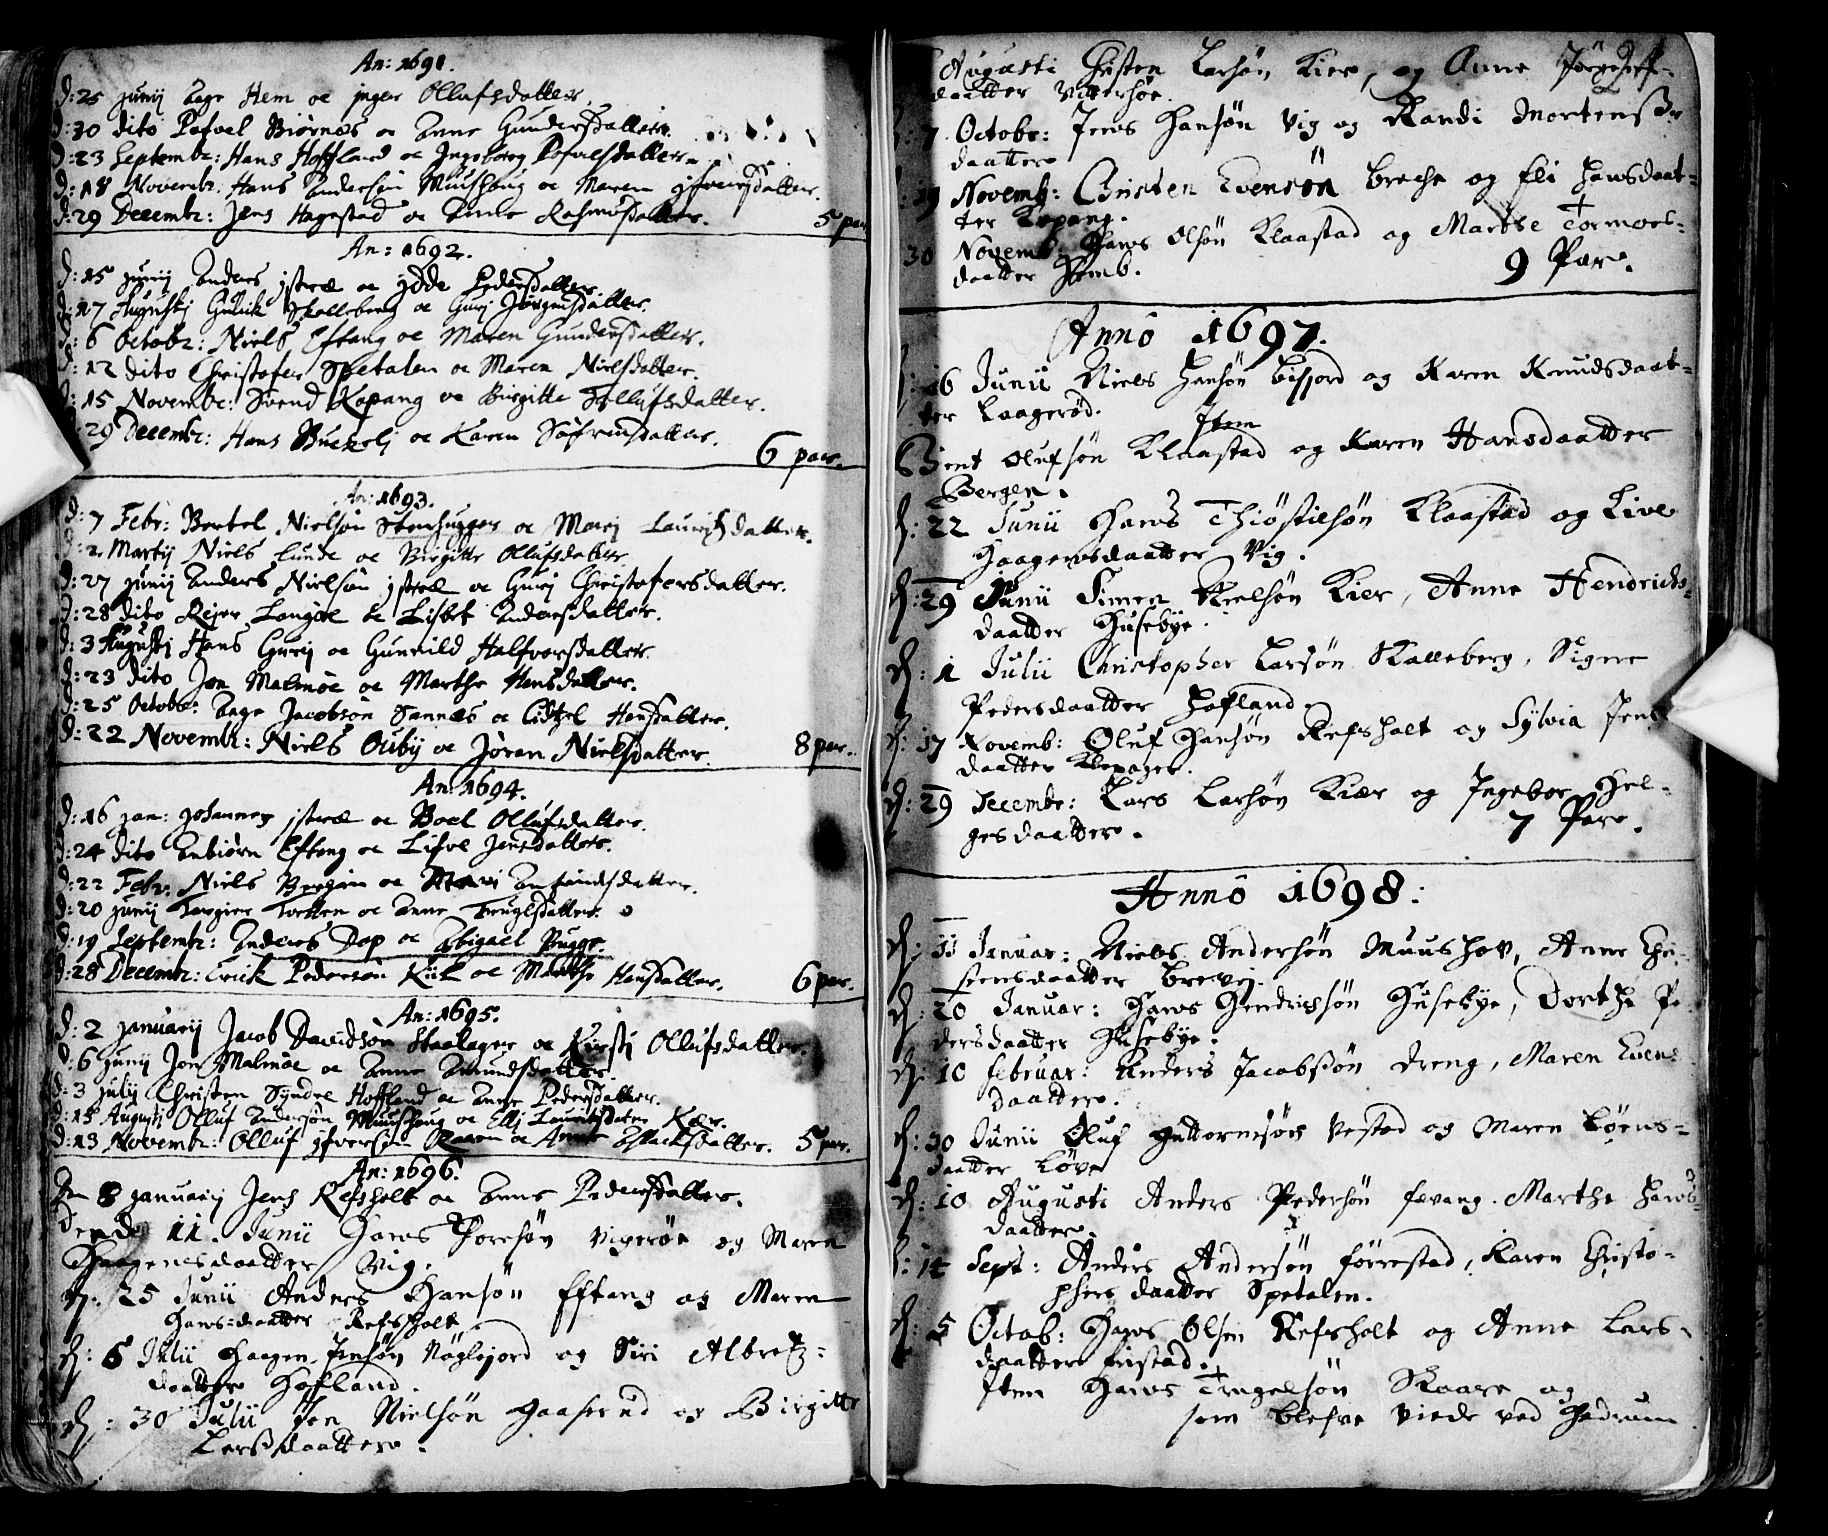 An: 1691.
d: 25 junij Aage Hem oc Inger Ollufsdatter.
d: 30 dito Pofvel Biørnæs oc Anne Gundersdatter.
d: 23 Septembr: Hans Hoffland oc Ingeborg Pofvelsdatter.
d: 18 Novembr: Hans Andersøn Muushoug oc Maren Ifversdatter.
d: 29 Decembr: Jens Hagestad oc Anne Rasmusdatter. 5 par
An: 1692.
d: 15 junij Anders Istræ oc Idde Pedersdatter.
d: 17 Augustij Gulick Skalleberg oc Gurj Jørgensdatter.
d: 6 Octobr: Niels Eftang oc Maren Gundersdatter.
d: 12 dito Christofer Spetalen oc Maren Nielsdatter.
d: 15 Novembr: Svend Kopang oc Birgitte Tollufsdatter.
29 Decembr: Hans Buerlj oc Karen Søfrensdatter. 6 par.
An: 1693.
d: 7 Febr: Bertel Nielsøn Steenhugger oc Marj Lauritzdatter.
d: 2 Martij Niels Lunde oc Birgitte Ollufsdatter
d: 27 junij Anders Nielsøn Istræ oc Gurj Christofersdatter.
d: 28 dito Rejer Langøe oc Lisbet Andersdatter.
d: 3 Augustj Hans Gurij oc Gunild Halfvorsdatter.
d: 23 dito Jon Malmøe oc Marthe Hansdatter.
d: 25 Octobr: Aage Jacobsøn Sannæs oc Citzel Hansdatter.
d: 22 Novembr: Niels Ouby oc Jøran Nielsdatter. 8 par.
An: 1694.
d: 16 jan: Johannes Istræ oc Boel Ollufsdatter.
d: 24 dito Anbiørn Eftang oc Lifve Jensdatter.
d: 22 Febr. Niels Bergan oc Marj Amundsdatter.
d: 20 junij Torgier Torsten oc Anne Truglsdatter.
d: 19 Septembr: Anders Dop oc Abigael Bugge.
d: 28 Decembr: Erick Pedersøn Kiik oc Marthe Hansdatter. 6 par.
An: 1695.
d: 2 januarij Jacob Davidsøn Staalager oc Kirstj Ollufsdatter.
d. 6 junij Jon Malmøe oc Anne Amundsdatter
d: 3 julij Christen Syndel Hoffland oc Anne Pedersdatter.
d: 15 Augusti Olluf Andersøn Muushoug oc Ellj Lauritzdatter Kær.
d: 13 Novembr: Olluf Ifversøn Raven oc Anne Isacksdatter. 5 par.
An: 1696.
Den 8 januarij Jens Refsholt oc Anne Pedersdatter.
Dend 11. Junii Hans Thoresøn Vigerøe og Maren
Haagensdaatter Vig.
d: 25 Junii Anders Hansøn Eftang og Maren
Hans=daatter Refsholt
d: 6 Julii Haagen Jensøn Nøglejord og Siri Albretz=
daatter Hofland.
d: 30 Julii Jon Nielsøn Gaaserud og Birgitte
Larsdaatter.
Augusti Christen Larsøn Kier, og Anne Jørgens=
daatter Vitterhoe.
d: 7 Octobr: Jens Hansøn Vig og Randi Mortens
daatter
19 Novemb: Christen Evensøn Breche og Eli Hansdaat=
ter Kopang.
30 Novemb Hans Olsøn Klaastad og Marthe Tormoes=
daatter Hemb. 9 Par.
Anno 1697.
d: 16 Junii Niels Hansøn Bisjord og Karen Knudsdaat=
ter Laagerød.
Item
Bent Olufsøn Klaastad og Karen Hansdaatter
Bergen.
d: 22 Junii Hans Thiøstilsøn Klaastad og Live
Haagensdaatter Vig.
d: 29 Junii Simen Nielsøn Kier, Anne Hendrichs=
daatter Husebye.
d: 1 Julii Christopher Larsøn Skalleberg, Signe
Pedersdaatter Hofland.
d: 17 Novemb: Oluf Hansøn Refsholt og Sylvia Jens
daatter Klepager.
d: 29 Decembr: Lars Larsøn Kiær og Ingebor Hel=
gesdaatter. 7 Par.
Anno 1698:
d: 11 Januar: Niels Andersøn Muushov, Anne Chri=
stensdaatter Brevig.
d: 20 Januar: Hans Hendrichsøn Husebye, Dorthe Pe
dersdaatter Husebye.
d: 10 Februar: Anders Jacobsøn Dreng, Maren Evens
daatter.
d: 30 Junii Oluf Guttormsøn Vestad og Maren Løens=
daatter Løve
d: 10 Augusti Anders Pedersøn Favang. Marthe Hans
daatter.
d: 14 Sept: Anders Andersøn Førrestad, Karen Christo=
phersdaatter Spetalen.
d: 5 Octob: Hans Olsen Refsholt og Anne Lars=
daatter Fristad.
Item Hans Trugelsøn Skaare og
som blefve viede ved Hedrum